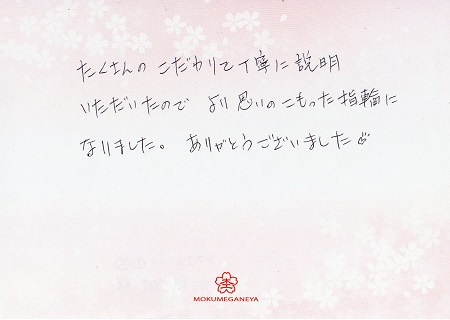 たくさんの こだわりて丁寧に説明
いただいたので より思いのこもった指輪に
なりました。 ありがとうございました
MOKUMEGANEYA